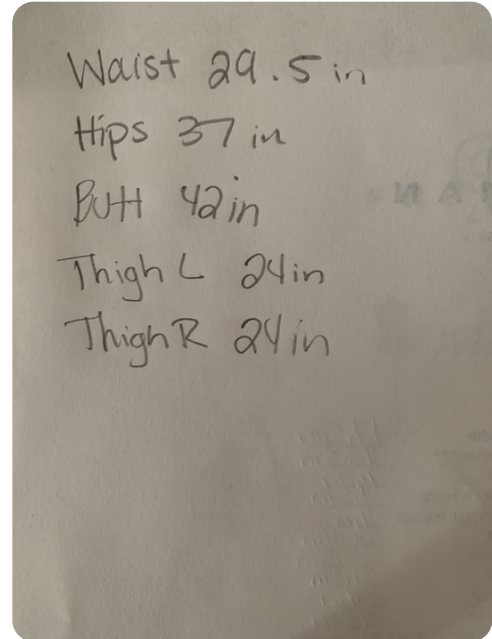 Waist 29.5 in
Hips 37 in
Butt 42 in
Thigh L 24 in
Thigh R 24 in